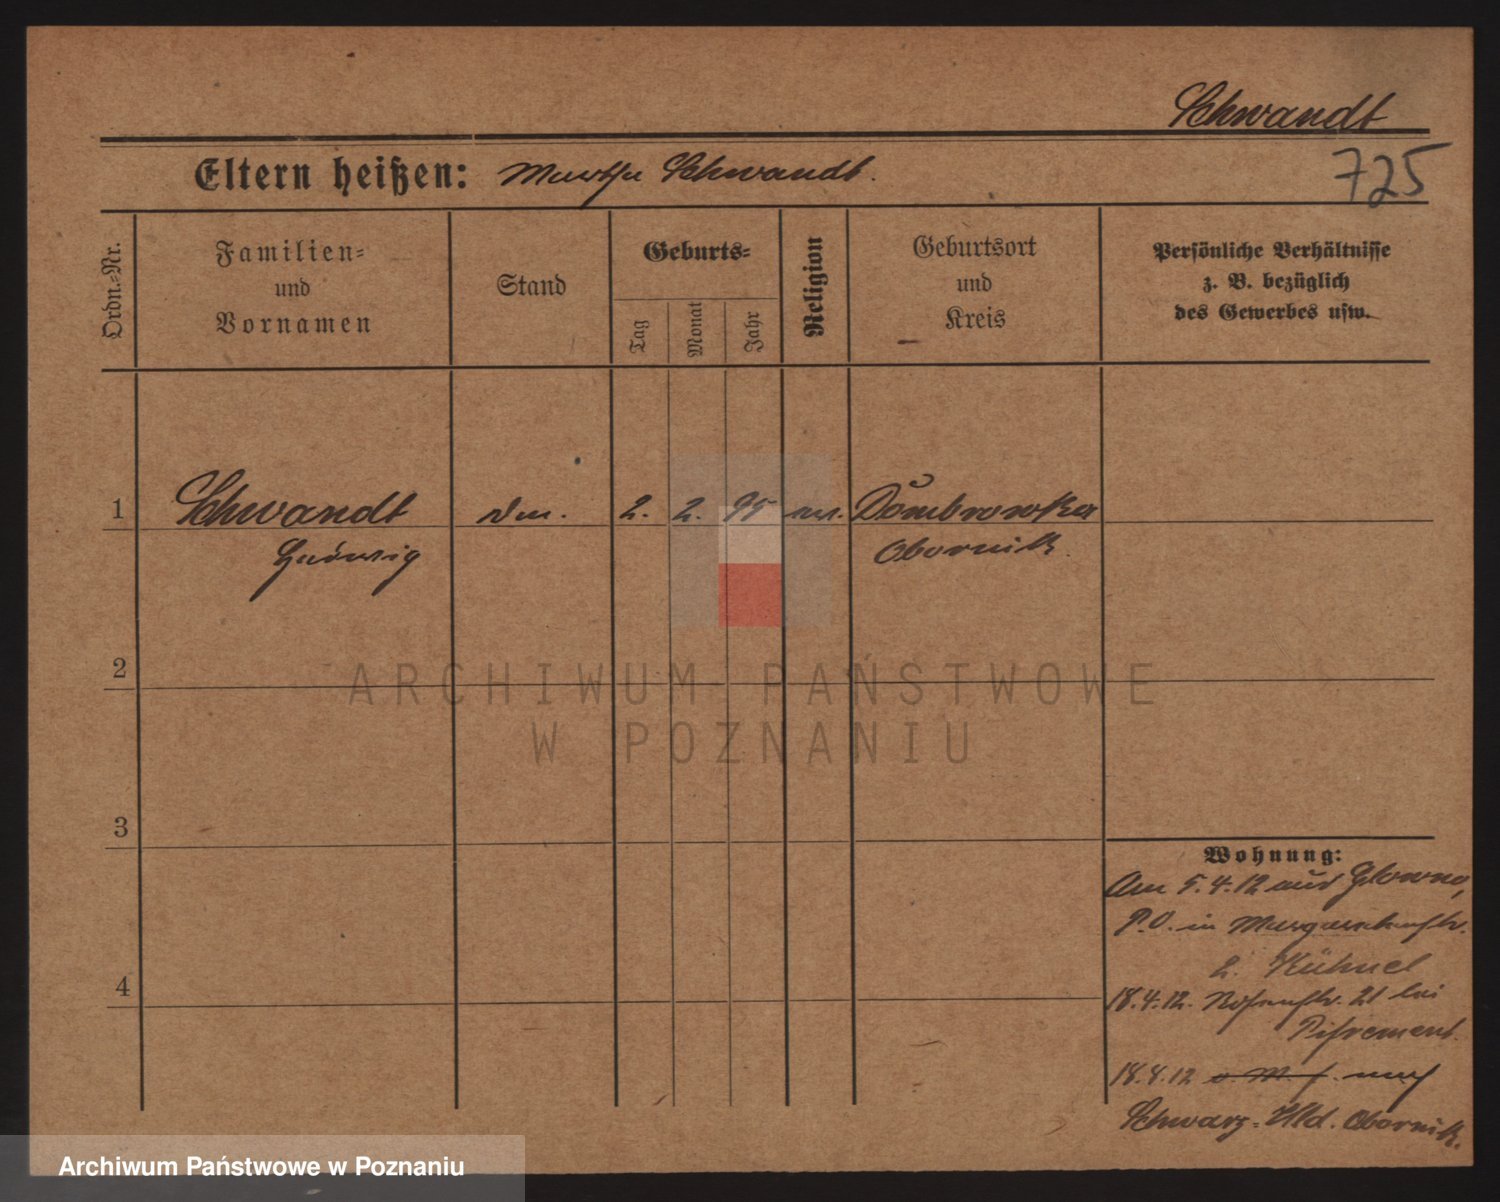 Schwandt
Eltern heißen: Martha Schwandt.
725
Ordn.-Nr.
Familien-
und
Vornamen
Stand
Geburts-
Tag
Monat
Jahr
Religion
Geburtsort
und
Kreis
Persönliche Verhältnisse
z. B. bezüglich
des Gewerbes usw.
1
Schwandt
2. 2. 95
Dombrowka
Ludwig
Obornik.
2
ARCHIWUM PAŃSTWOWE
W POZNANIU
3
Wohnung:
Am 5.4.12 aus Glowno,
P.O. in
b. Kühnel
4
18.4.12. 21 bei
18.8.12 nach
Schwarz-Hld. Obornik.
Archiwum Państwowe w Poznaniu